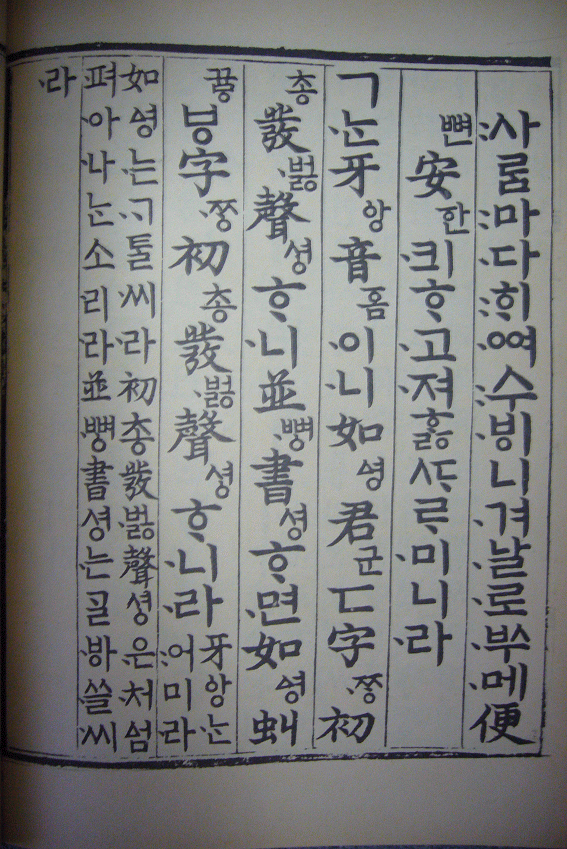 :사:ᄅᆞᆷ:마·다:ᄒᆡ·ᅇᅧ:수·ᄫᅵ니·겨·날·로·ᄡᅮ·메便
뼌安ᅙᅡᆫ·킈ᄒᆞ·고·져ᄒᆞᇙᄯᆞᄅᆞ·미니·라
ㄱ·ᄂᆞᆫ牙ᅌᅡᆼ音ᅙᅳᆷ·이·니如ᅀᅧᆼ君군ㄷ字·ᄍᆞᆼ初
총發·버ᇙ聲셩ᄒᆞ·니並·뼝書셩ᄒᆞ·면如ᅀᅧᆼ虯
뀨ᇢㅸ字·ᄍᆞᆼ初총發·버ᇙ聲셩ᄒᆞ·니·라牙ᅌᅡᆼ·ᄂᆞᆫ
:어미·라
如ᅀᅧᆼ·는·ᄀᆞ·ᄐᆞᆯ·씨·라初총發·버ᇙ聲셩·은·처ᅀᅥᆷ
·펴·아·나·ᄂᆞᆫ소·리·라並·뼝書셩·는ᄀᆞᆯ·ᄫᅡ·쓸·씨
·라